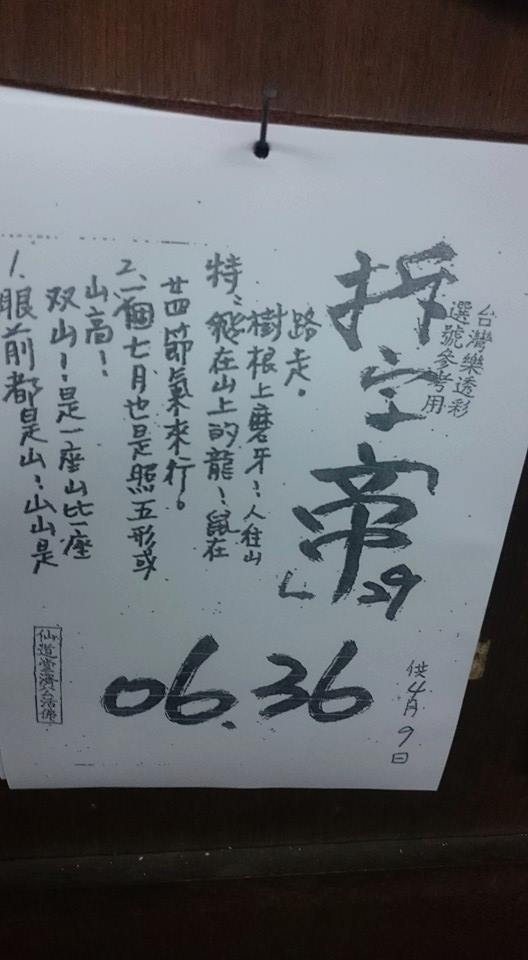 台灣樂透彩
選號參考用
拆字帝
29
1.眼前都是山~山山是
双山~是一座山比一座
山高~
2.一個七月也是照五形或
廿四節氣來行。
特:在山上的龍~鼠在
樹根上磨牙~人往山
路走。
06.36
供4月9日
仙道堂濟公活佛